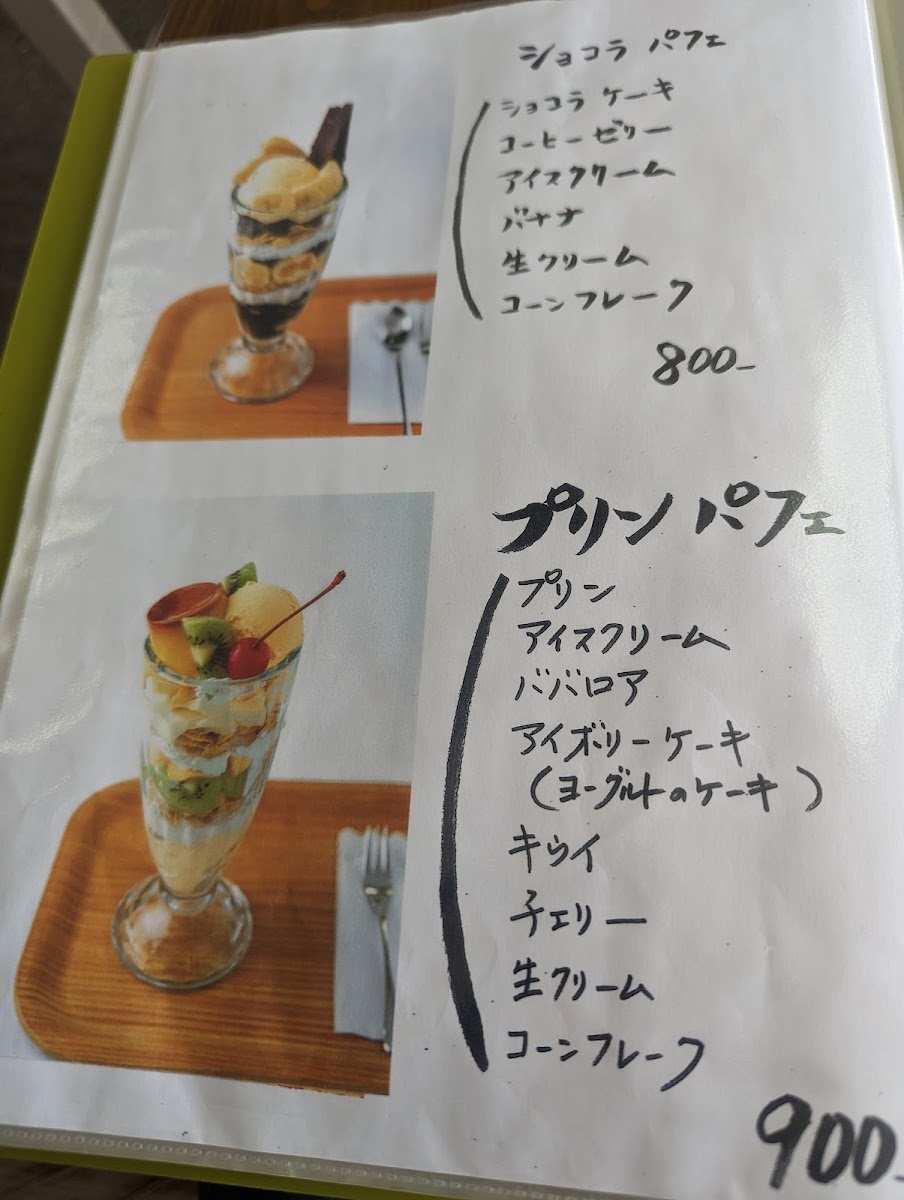 ショコラ パフェ
ショコラ ケーキ
コーヒーゼリー
アイスクリーム
バナナ
生クリーム
コーンフレーク
800-
プリン パフェ
プリン
アイスクリーム
ババロア
アイボリーケーキ
(ヨーグルトのケーキ)
キウイ
チェリー
生クリーム
コーンフレーク
900-